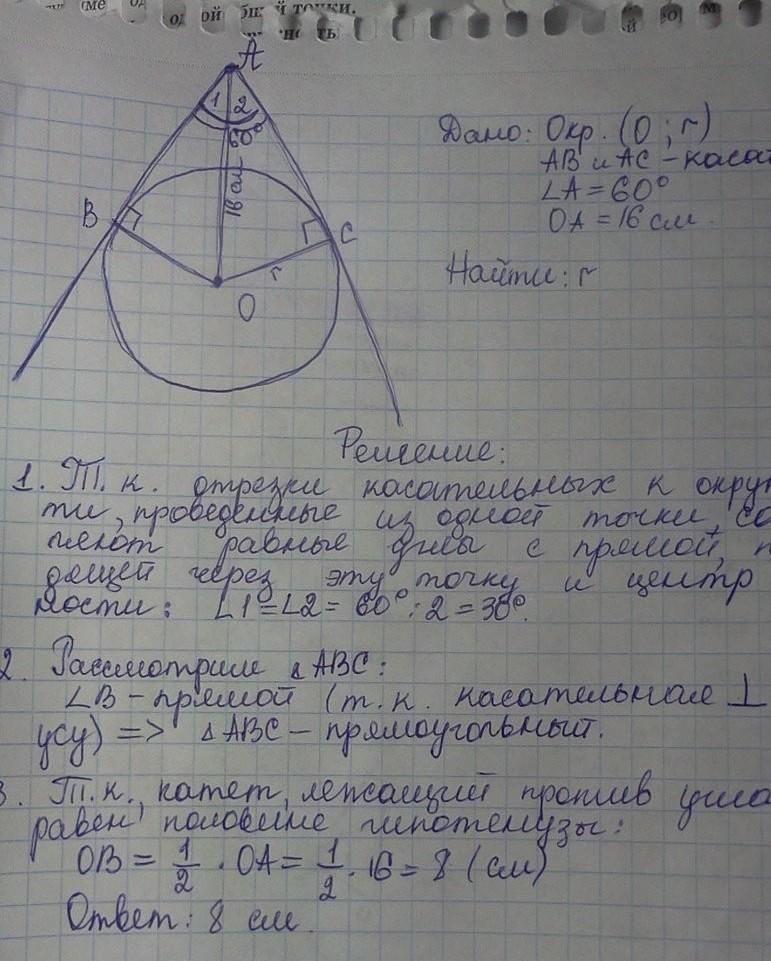 одной
точки.
A
1 2
60°
16 см
B
C
r
O
Дано: Окр. (O ; r)
AB и AC – касат
∠A = 60°
OA = 16 см.
Найти: r
Решение:
1. Т. к. отрезки касательных к окруж
ти, проведенные из одной точки, со
равные углы с прямой, п
дящей через эту точку и центр
ности: ∠1=∠2= 60° : 2 = 30°.
2. Рассмотрим △ABC:
∠B – прямой (т. к. касательная ⊥
усу) => △ABC – прямоугольный.
3. Т. к., катет, лежащий против угла
равен половине гипотенузы:
OB = 1/2 · OA = 1/2 · 16 = 8 (см)
Ответ: 8 см.